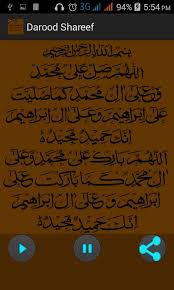 94% 5:54 PM
Darood Shareef
بسم الله الرحمن الرحيم
اللهم صل على محمد
وعلى ال محمد كما صليت
على ابراهيم وعلى ال
ابراهيم انك حميد مجيد
اللهم بارك على محمد وعلى
ال محمد كما باركت على
ابراهيم وعلى ال ابراهيم
انك حميد مجيد